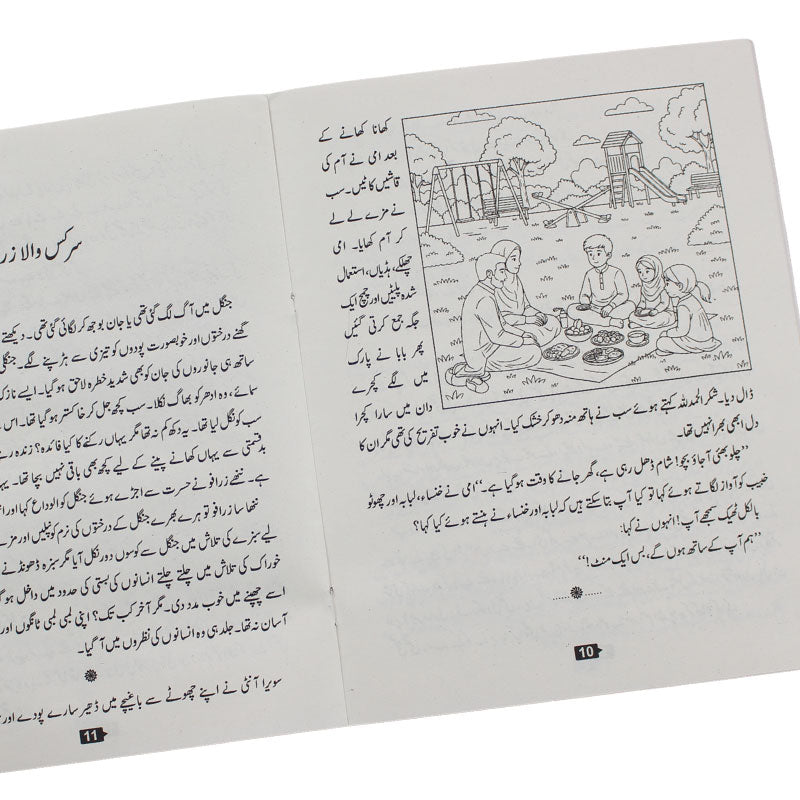 کھانا کھانے کے
بعد امی نے آم کی
قاشیں کاٹیں۔ سب
نے مزے لے لے
کر آم کھایا۔ امی
چھلکے، ہڈیاں، استعمال
شدہ پلیٹیں اور چمچ ایک
جگہ جمع کرتی گئیں
پھر بابا نے پارک
میں لگے کچرے
دان میں سارا کچرا
ڈال دیا۔ شکر الحمدللہ کہتے ہوئے سب نے ہاتھ منہ دھو کر خشک کیا۔ انہوں نے خوب تفریح کی تھی مگر ان کا
دل ابھی بھرا نہیں تھا۔
”چلو بھئی آجاؤ بچو! شام ڈھل رہی ہے، گھر جانے کا وقت ہو گیا ہے۔“ امی نے خنساء، لبابہ اور چھوٹو
خبیب کو آواز لگاتے ہوئے کہا تو کیا آپ بتا سکتے ہیں کہ لبابہ اور خنساء نے ہنستے ہوئے کیا کہا؟
بالکل ٹھیک سمجھے آپ! انہوں نے کہا:
”ہم آپ کے ساتھ ہوں گے، بس ایک منٹ!“
10
سرکس والا
جنگل میں آگ لگ گئی تھی یا جان بوجھ کر لگائی گئی تھی۔ دیکھتے
گھنے درختوں اور خوبصورت پودوں کو تیزی سے ہڑپنے لگے۔ جنگل
ساتھ ہی جانوروں کی جان کو بھی شدید خطرہ لاحق ہو گیا۔ ایسے نازک
سمائے، وہ ادھر کو بھاگ نکلا۔ سب کچھ جل کر خاکستر ہو گیا تھا۔ اس
سب کو نگل لیا تھا۔ یہ دکھ کم نہ تھا مگر یہاں رکنے کا کیا فائدہ؟ زندہ
بدقسمتی سے یہاں کھانے پینے کے لیے کچھ بھی باقی نہیں بچا تھا۔
ہے۔ ننھے زرافو نے حسرت سے اجڑے ہوئے جنگل کو الوداع کہا اور
ننھا سا زرافو تو ہرے بھرے جنگل کے درختوں کی نرم کونپلیں اور
لیے سبزے کی تلاش میں جنگل سے کوسوں دور نکل آیا مگر سبزہ ڈھونڈنے
خوراک کی تلاش میں چلتے چلتے انسانوں کی بستی کی حدود میں داخل ہو
اسے چھپنے میں خوب مدد دی۔ مگر آخر کب تک؟ اپنی لمبی لمبی ٹانگوں اور
آسان نہ تھا۔ جلد ہی وہ انسانوں کی نظروں میں آ گیا۔
سویرا آنٹی نے اپنے چھوٹے سے باغیچے میں ڈھیر سارے پودے اور
11